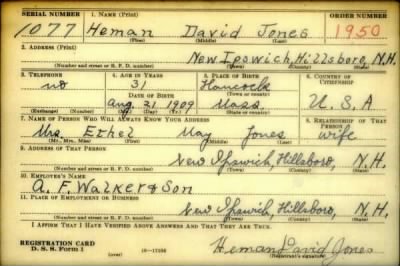 SERIAL NUMBER 1. NAME (Print) ORDER NUMBER
1077 Heman David Jones 1950
(First) (Middle) (Last)
2. ADDRESS (Print)
New Ipswich, Hillsboro, N.H.
(Number and street or R. F. D. number) (Town) (County) (State)
3. TELEPHONE 4. AGE IN YEARS 5. PLACE OF BIRTH 6. COUNTRY OF CITIZENSHIP
no 31 Hancock
DATE OF BIRTH (Town or county)
Aug. 21 1909 Mass. U.S.A
(Exchange) (Number) (Mo.) (Day) (Yr.) (State or country)
7. NAME OF PERSON WHO WILL ALWAYS KNOW YOUR ADDRESS 8. RELATIONSHIP OF THAT PERSON
Mrs. Ethel May Jones wife
(Mr., Mrs., Miss) (First) (Middle) (Last)
9. ADDRESS OF THAT PERSON
New Ipswich, Hillsboro, N.H.
(Number and street or R. F. D. number) (Town) (County) (State)
10. EMPLOYER'S NAME
A. F. Walker & Son
11. PLACE OF EMPLOYMENT OR BUSINESS
New Ipswich, Hillsboro, N.H.
(Number and street or R. F. D. number) (Town) (County) (State)
I AFFIRM THAT I HAVE VERIFIED ABOVE ANSWERS AND THAT THEY ARE TRUE.
REGISTRATION CARD
D. S. S. Form 1 (over) Heman David Jones
(Registrant's signature)